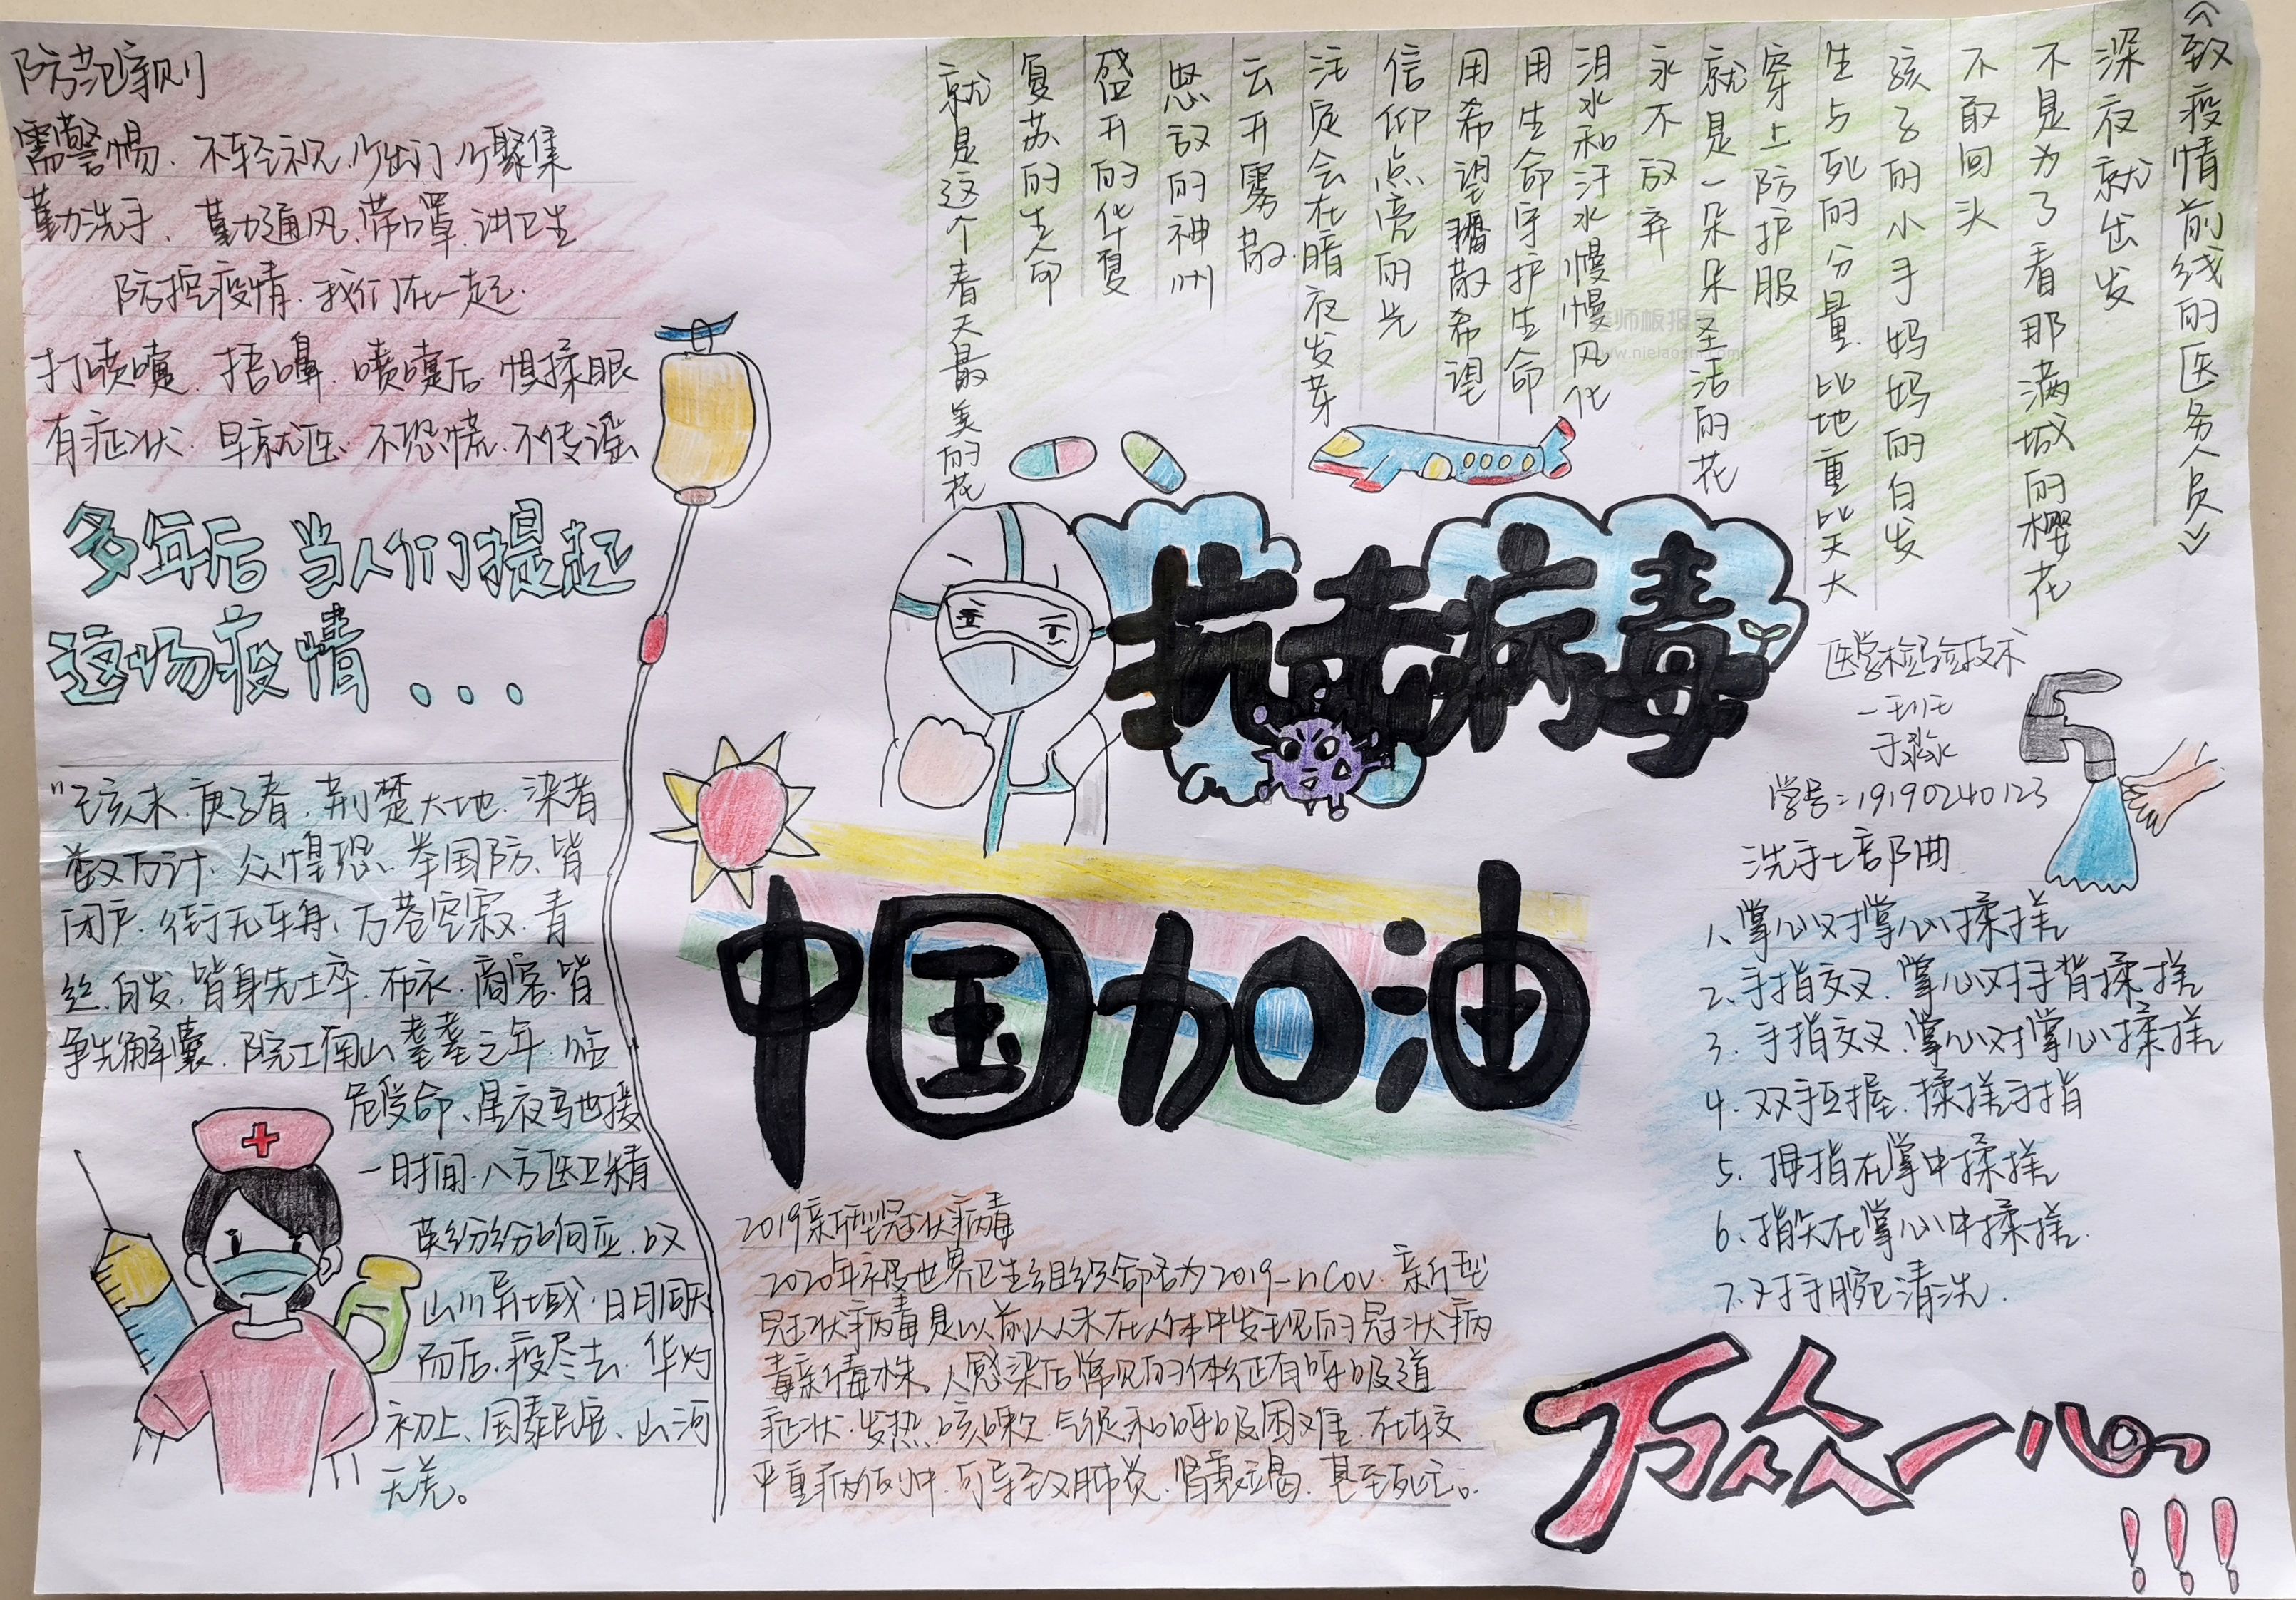 防范守则
需警惕、不轻视、少出门、少聚集
勤洗手、勤通风、带口罩、讲卫生
防控疫情、我们在一起.
打喷嚏、捂口鼻、喷嚏后、惧揉眼
有症状、早就医、不恐慌、不传谣
多年后 当人们提起
这场疫情...
"己亥末、庚子春、荆楚大地、染者
数万计、众惶恐、举国防、皆
闭户、街无车舟、万巷空寂、青
丝、白发、皆身先士卒、布衣、商客、皆
争先解囊、院士南山耄耋之年、临
危受命、星夜驰援
一时间、八方医卫精
英纷纷响应、
山川异域、日月同天
而后、疫尽去、华灯
初上、国泰民安、山河
无恙。
《致疫情前线的医务人员》
深夜就出发
不是为了看那满城的樱花
不敢回头
孩子的小手妈妈的白发
生与死的分量、比地重比天大
穿上防护服
就是一朵朵圣洁的花
永不放弃
泪水和汗水慢慢风化
用生命守护生命
用希望播散希望
信仰点亮的光
注定会在暗夜发芽
云开雾散
怒放的神州
盛开的华夏
复苏的生命
就是这个春天最美的花
老师板报网
www.nielaoshi.com
抗击病毒
中国加油
医学检验技术
一班
于淼
学号:19190240123
洗手七部曲
1、掌心对掌心揉搓
2、手指交叉、掌心对手背揉搓
3、手指交叉、掌心对掌心揉搓
4、双手互握、揉搓手指
5、拇指在掌中揉搓
6、指尖在掌心中揉搓.
7、对手腕清洗.
2019新型冠状病毒
2020年被世界卫生组织命名为2019-nCoV、新型
冠状病毒是以前从未在人体中发现的冠状病
毒新毒株。人感染后常见的体征有呼吸道
症状、发热、咳嗽、气促和呼吸困难、在较
严重病例中、可导致肺炎、肾衰竭、甚至死亡。
万众一心
!!!